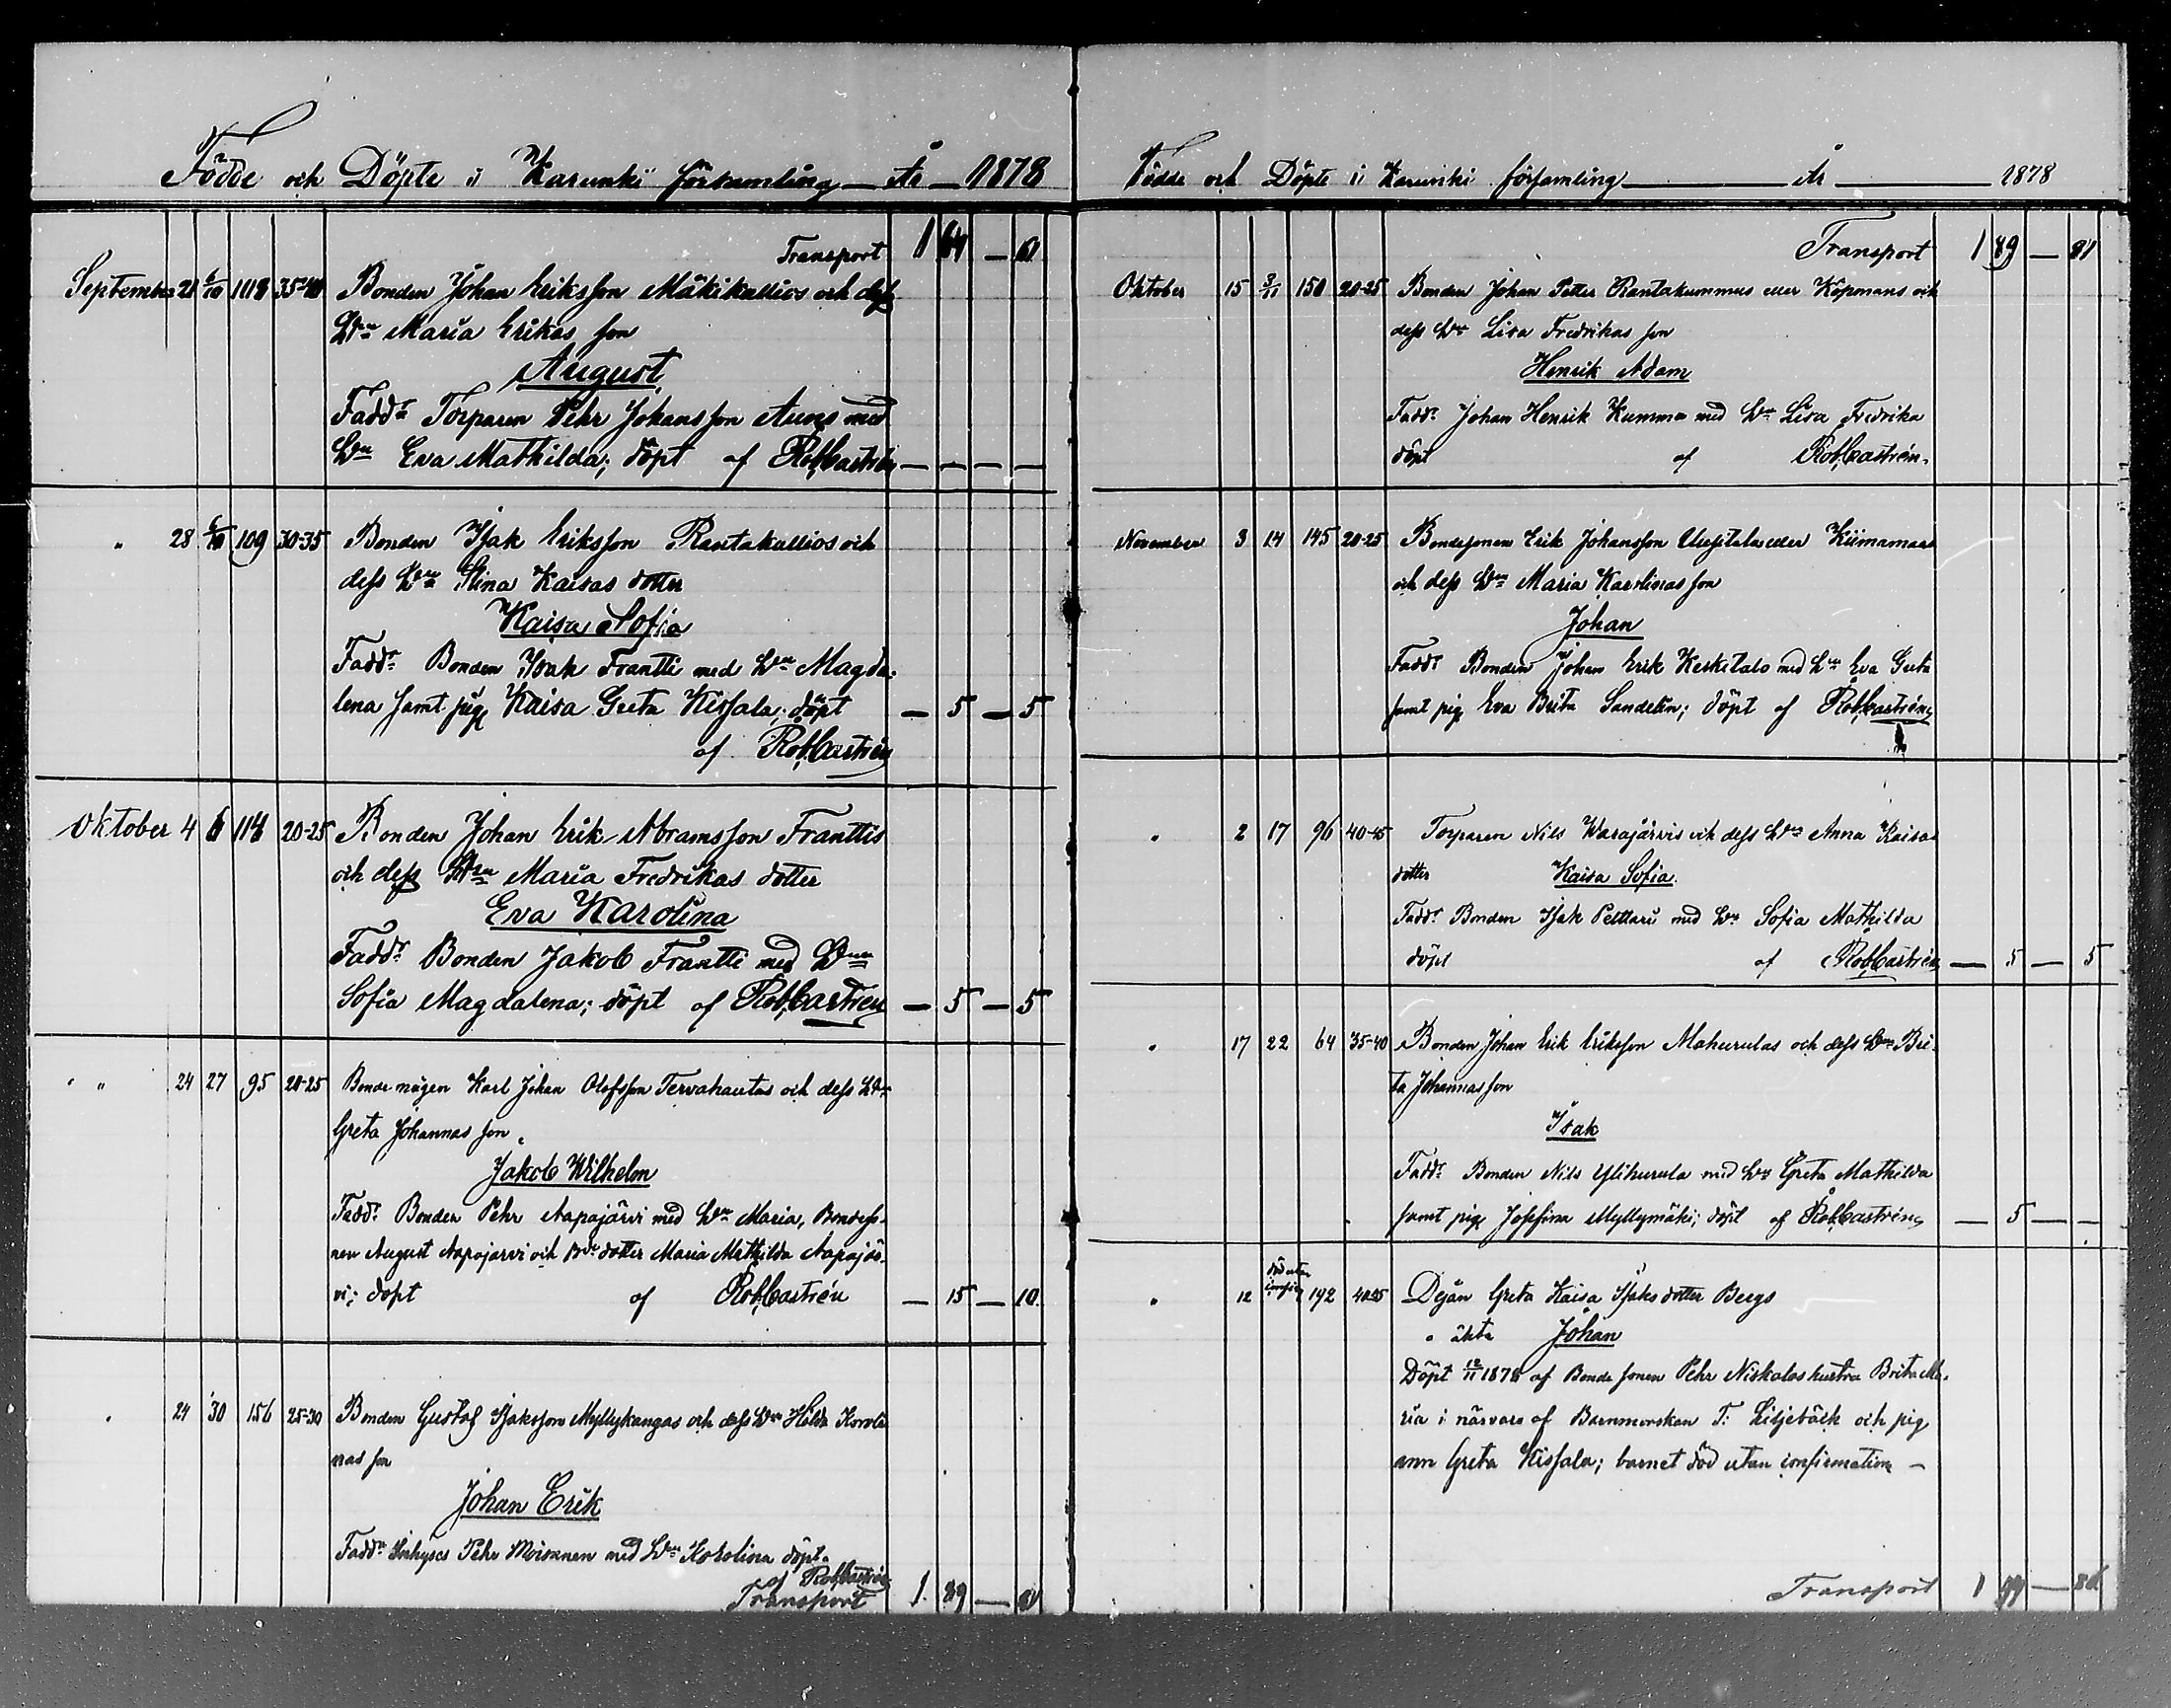 Födde och Döpte i Karunki församling År 1878
Transport 1 64 — 61
September 21 6/10 118 35-40 Bonden Johan Eriksson Mäkikallios och dess
Hru Maria Erikas son
August
Faddr Torparen Pehr Johansson Auno med
Hru Eva Mathilda; döpt af Rob. Castrén — — — —
" 28 6/10 109 30-35 Bonden Isak Eriksson Rantakallios och
dess Hru Stina Kaisas dotter
Kaisa Sofia
Faddr Bonden Isak Frantti med Hru Magda-
lena samt pig Kaisa Greta Kissala; döpt — 5 — 5
af Rob. Castrén
Oktober 4 6 114 20-25 Bonden Johan Erik Abramsson Franttis
och dess Hru Maria Fredrikas dotter
Eva Karolina
Faddr Bonden Jakob Frantti med Hru
Sofia Magdalena; döpt af Rob. Castrén — 5 — 5
" 24 27 95 20-25 Bondemågen Karl Johan Olofsson Tervahautas och dess Hru
Greta Johannas son
Jakob Wilhelm
Faddr Bonden Pehr Aapajärvi med Hru Maria, Bondesso-
nen August Aapajärvi och Bde dotter Maria Mathilda Aapajär-
vi; döpt af Rob. Castrén — 15 — 10
" 24 30 156 25-30 Bonden Gustaf Isaksson Myllykangas och dess Hru Hilda Karoli
nas son
Johan Erik
Faddr Inhyses Pehr Moisanen med Hru Karolina döpt
af Rob. Castrén
Transport 1 89 — 81
Födde och Döpte i Karunki församling År 1878
Transport 1 89 — 81
Oktober 15 3/11 150 20-25 Bonden Johan Petter Rantakummus eller Köpmans och
dess Hru Lisa Fredrikas son
Henrik Adam
Faddr Johan Henrik Kummu med Hru Lisa Fredrika
döpt af Rob. Castrén
November 3 14 145 20-25 Bondesonen Erik Johansson eller Kiimamaas
och dess Hru Maria Karolinas son
Johan
Faddr Bonden Johan Erik Keskitalo med Hru Eva Greta
samt pig Eva Brita Sandelin; döpt af Rob. Castrén
" 2 17 96 40-45 Torparen Nils Warajärvis och dess Hru Anna Kaisas
dotter Kaisa Sofia
Faddr Bonden Isak Pelttari med Hru Sofia Mathilda
döpt af Rob. Castrén — 5 — 5
" 17 22 64 35-40 Bonden Johan Erik Eriksson Mahurulas och dess Hru Bri-
ta Johannas son
Isak
Faddr Bonden Nils Ylihurula med Hru Greta Mathilda
samt pig Josefina Myllymäki; döpt af Rob. Castrén — 5 — —
" 12 död utan confirm 192 40-45 Dejan Greta Kaisa Isaks dotter Bergs
o äkta Johan
Döpt 12/11 1878 af Bonde sonen Pehr Niskalas hustru Brita Ma-
ria i närvaro af Barnmorskan T: Liljebäck och pig
ann Greta Kissala; barnet död utan confirmation —
Transport 1 99 — 86